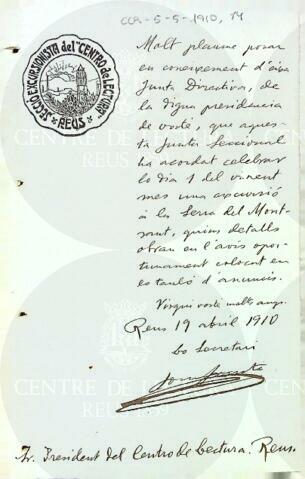 CCR-5-5-1910, 14
SECCIÓ EXCURSIONISTA del "CENTRO de LECTURA"
REUS
Molt plaume posar
en coneixement d'eixa
Junta Directiva, de
la digna presidencia
de vosté, que aques-
ta Junta Seccional
ha acordat celebrar
lo dia 1 del vinent
mes una excursió
á la Serra del Mont-
sant, quins detalls
obran en l'avís opor-
tunament colocat en
es tauló d'anuncis.
Visqui vosté molts anys.
Reus 19 abril 1910
Lo Secretari
Sr. President del Centro de Lectura. Reus.
CENTRE DE LECTURA
REUS 1859